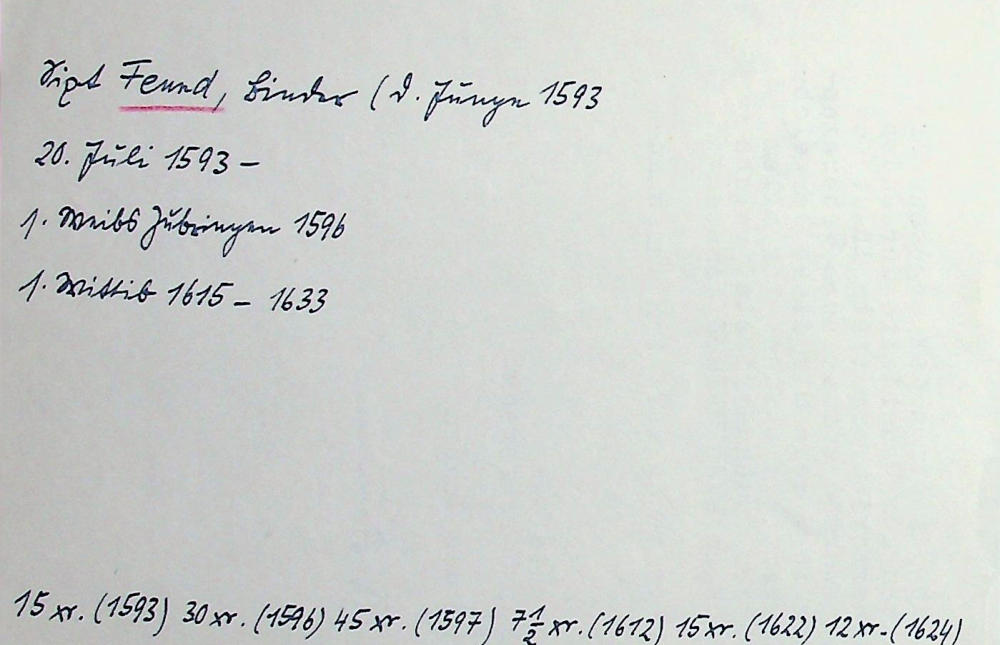 Sixt Feund, Binder (d. Junge 1593
20. Juli 1593 –
1. Weibs Zubringen 1596
1. Wittib 1615 – 1633
15 xr. (1593) 30 xr. (1596) 45 xr. (1597) 7 1/2 xr. (1612) 15 xr. (1622) 12 xr. (1624)